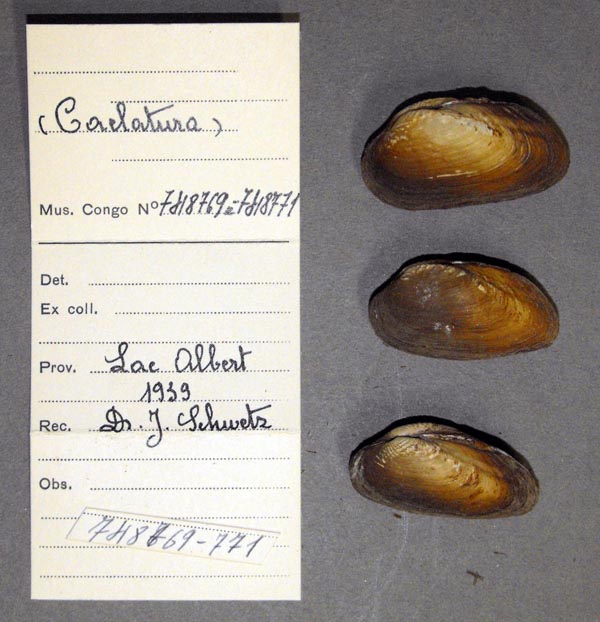 (Caelatura)
Mus. Congo Nº 748769-748771
Det.
Ex coll.
Prov. Lac Albert
1939
Rec. Dr. J. Schwetz
Obs.
748769-771